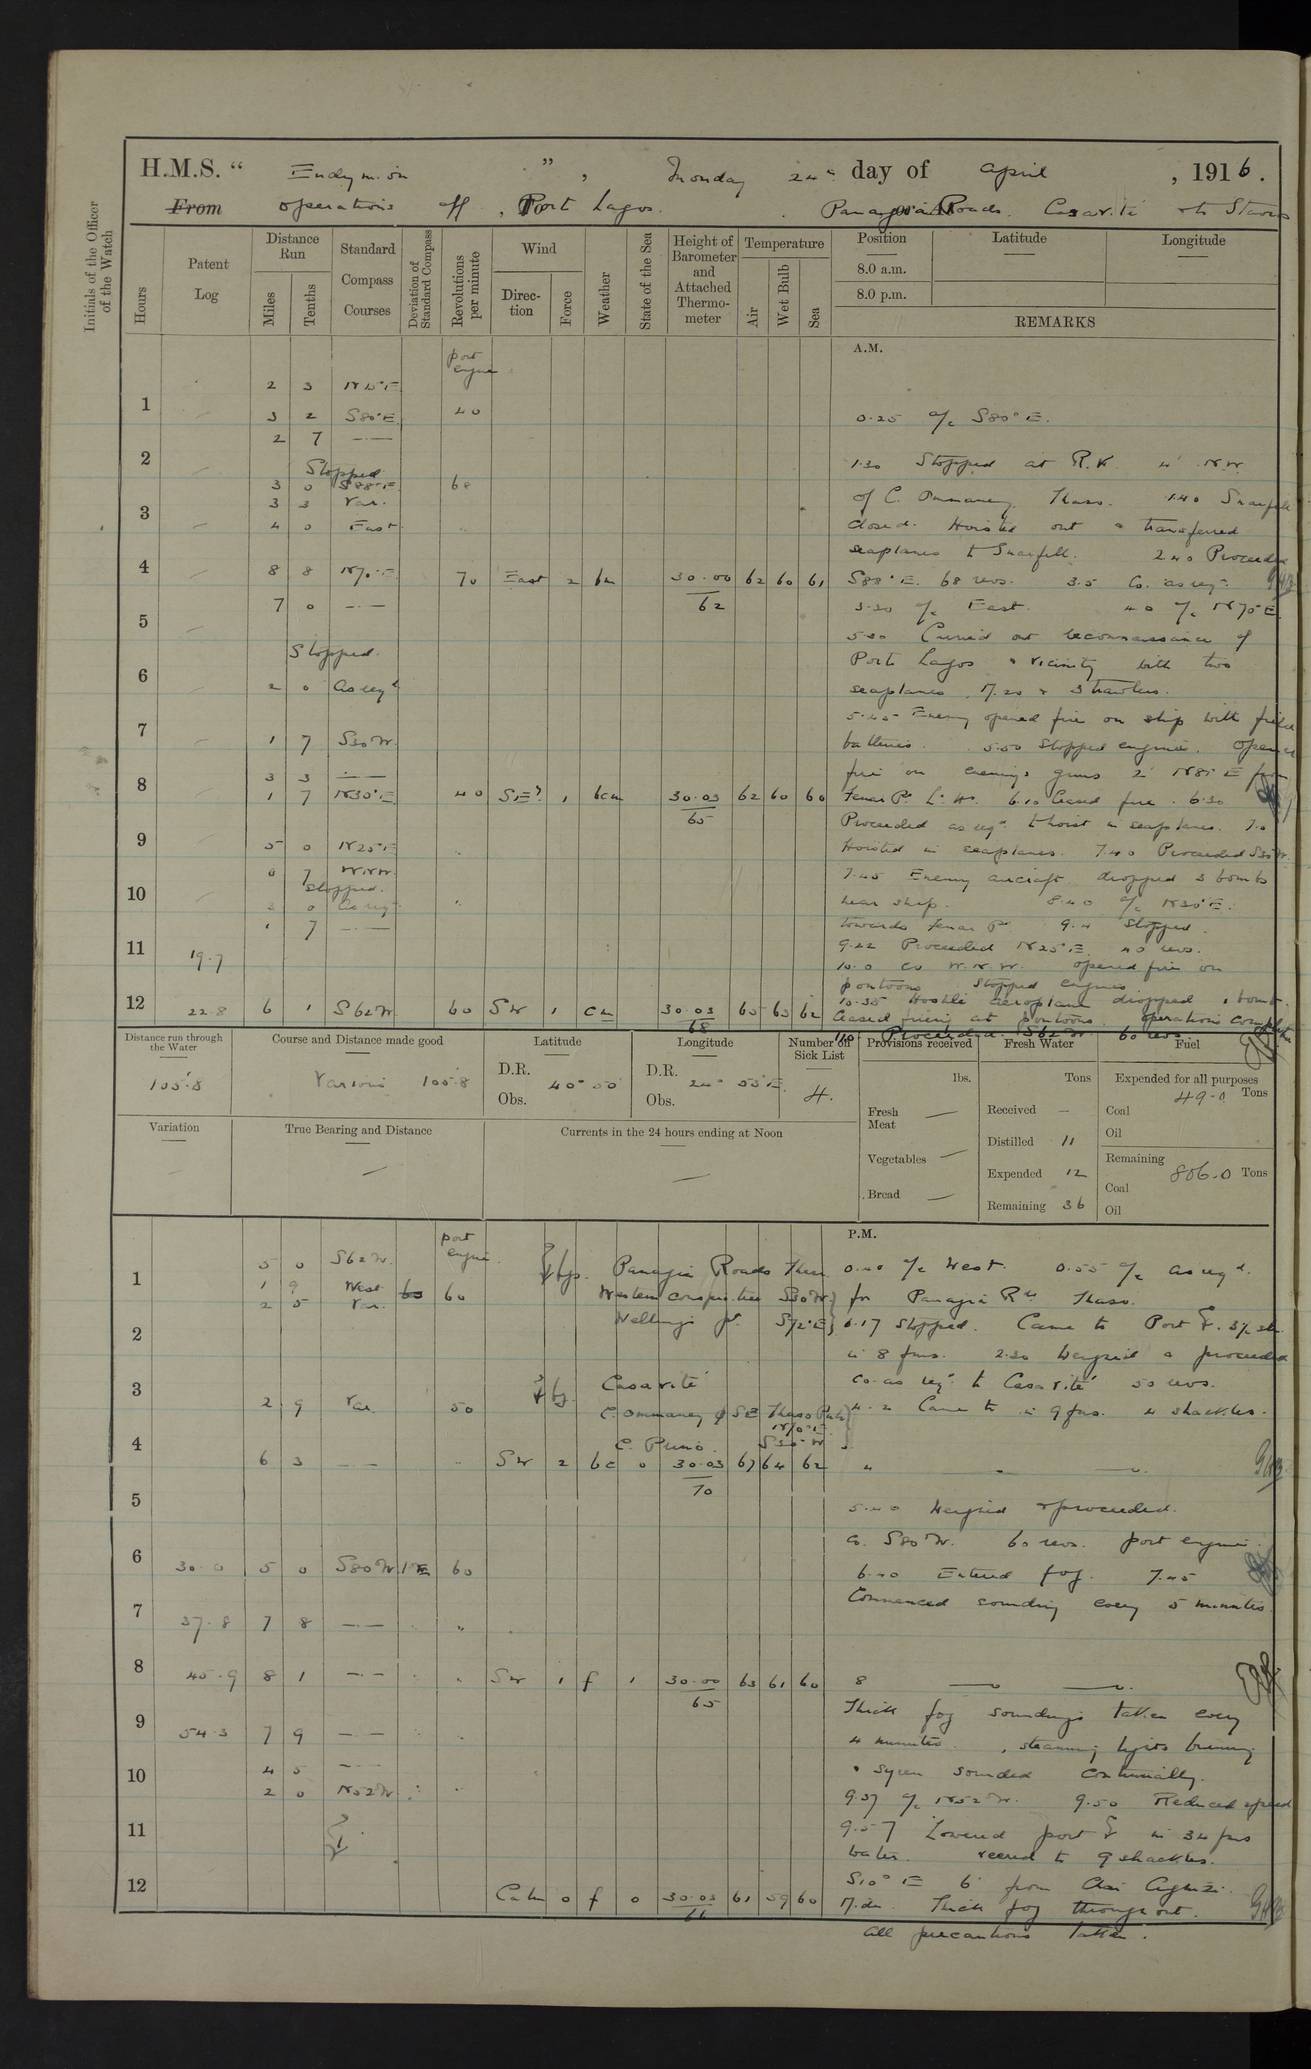 H.M.S. " Endymion ", Monday 24th day of April, 1916.
From operations off Port Lagos. Panagia Roads. Casavité to Stavros
Initials of the Officer of the Watch
Hours
Patent Log
Distance Run
Miles
Tenths
Standard Compass Courses
Deviation of Standard Compass
Revolutions per minute
Wind
Direction
Force
Weather
State of the Sea
Height of Barometer and Attached Thermometer
Temperature
Air
Wet Bulb
Sea
Position
Latitude
Longitude
8.0 a.m.
8.0 p.m.
REMARKS
A.M.
port engine
2 3 N15°E
1 3 2 S80°E 40 0.25 a/c S80°E.
2 7 — —
2 Stopped 1.30 Stopped at R.V. 4' N.W.
3 0 S88°E 68
3 3 Var. of C. Ommaney Thaso. 1.40 Snaefell
3 4 0 East closed. Hoisted out & transferred
seaplanes to Snaefell. 2.40 Proceeded
4 8 8 N70°E 70 East 2 bm 30.00 62 60 61 S88°E. 68 revs. 3.5 Co. as reqd.
62
7 0 — — 3.30 a/c East. 4.0 a/c N70°E
5 5.30 Carried out reconnaissance of
Stopped. Port Lagos & vicinity with two
6 2 0 As reqd seaplanes, M.20 & 3 trawlers.
7 5.45 Enemy opened fire on ship with field
1 7 S30W. batteries. 5.50 Stopped engines. Opened
3 3 — — fire on enemy's guns 2' N85°E from
8 1 7 N30°E 40 SE'ly 1 bcm 30.03 62 60 60 Fenar Pt Lt Ho. 6.10 Ceased fire. 6.30
65
Proceeded as reqd to hoist in seaplanes. 7.0
9 5 0 N25°E Hoisted in seaplanes. 7.40 Proceeded S30W.
0 7 W.N.W. 7.45 Enemy aircraft dropped 3 bombs
Stopped.
10 2 0 As reqd near ship. 8.40 a/c N30°E.
1 7 — — towards Fenar Pt 9.4 Stopped.
11 19.7 9.22 Proceeded N25°E. 40 revs.
10.0 Co W.N.W. opened fire on
pontoons Stopped engines
12 22.8 6 1 S62W 60 SW 1 cm 30.03 65 63 62 10.35 Hostile aeroplane dropped 1 bomb.
68
Ceased firing at pontoons. Operations complete
11.0 Proceeded S62W 60 revs.
Distance run through the Water
105.8
Course and Distance made good
Various 105.8
Latitude
D.R. 40° 50'
Obs.
Longitude
D.R. 24° 55'E.
Obs.
Number on Sick List
4.
Provisions received
lbs.
Fresh Meat —
Vegetables —
Bread —
Fresh Water
Tons
Received —
Distilled 11
Expended 12
Remaining 36
Fuel
Expended for all purposes
49.0 Tons
Coal
Oil
Remaining
806.0 Tons
Coal
Oil
Variation
—
True Bearing and Distance
—
Currents in the 24 hours ending at Noon
—
P.M.
port engine
5 0 S62W. Panagia Roads Thaso 0.40 a/c West. 0.55 a/c as reqd.
1 1 9 West 60 60 S30W for Panagia Rds Thaso.
2 5 Var. S72°E 1.17 Stopped. Came to Port
2 in 8 fms. 2.30 Weighed & proceeded
3 Casavité Co. as reqd to Casavité 50 revs.
2 9 Var. 50 C. Ommaney & SE Thaso Pulo N70°E 4.2 Came to in 9 fms. 4 shackles.
4 C. Prino. S30W
6 3 — — SW 2 bc 0 30.03 67 64 62 4
70
5 5.40 Weighed & proceeded.
Co. S80W. 60 revs. port engine.
6 30.0 5 0 S80W 1°E 60 6.40 Entered fog. 7.45
7 37.8 7 8 — — Commenced sounding every 5 minutes.
8 45.9 8 1 — — SW 1 f 1 30.00 63 61 60 8
65
Thick fog soundings taken every
9 54.3 7 9 — — 4 minutes, steaming lights burning
10 4 5 — — & syren sounded continually.
2 0 N52W 9.37 a/c N52W. 9.50 Reduced speed
11 9.57 Lowered port in 34 fms
water. veered to 9 shackles.
S10°E 6' from
12 Calm 0 f 0 30.03 61 59 60 M.dn. Thick fog throughout.
66
All precautions taken.